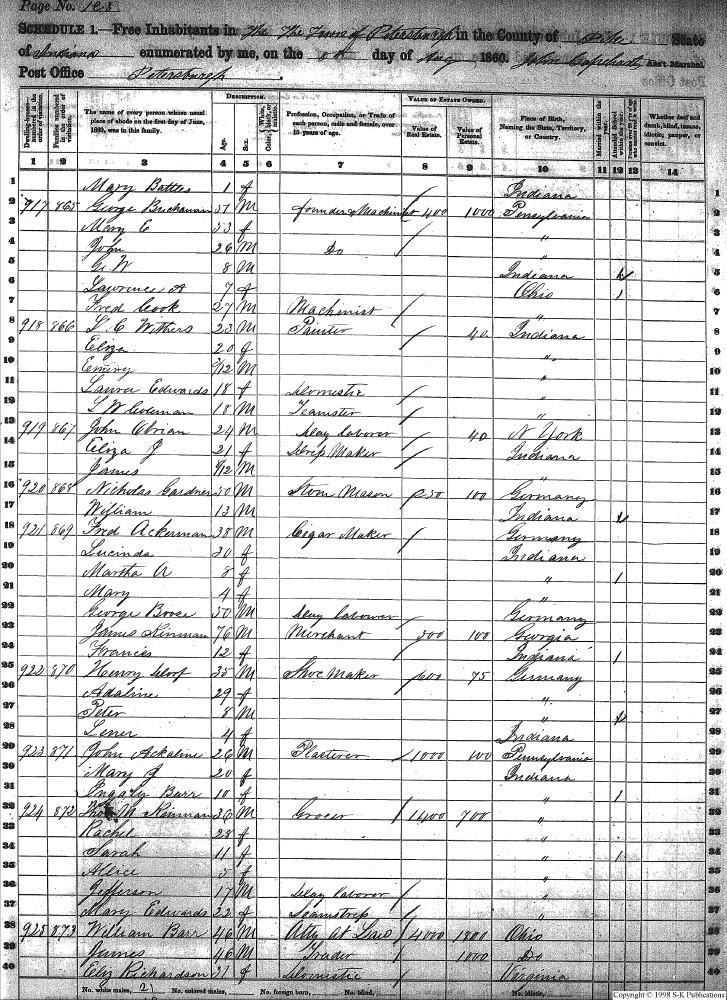 Page No.
SCHEDULE 1.—Free Inhabitants in The Town of Petersburgh in the County of Pike State
of Indiana enumerated by me, on the day of Aug 1860. John Ass't Marshal
Post Office Petersburgh.
DESCRIPTION. VALUE OF ESTATE OWNED.
Dwelling-houses—numbered in the order of visitation. Families numbered in the order of visitation. The name of every person whose usual place of abode on the first day of June, 1860, was in this family. Age. Sex. Color, White, black, or mulatto. Profession, Occupation, or Trade of each person, male and female, over 15 years of age. Value of Real Estate. Value of Personal Estate. Place of Birth, Naming the State, Territory, or Country. Married within the year. Attended School within the year. Whether deaf and dumb, blind, insane, idiotic, pauper, or convict.
1 2 3 4 5 6 7 8 9 10 11 12 13 14
1 Mary Battles 1 f Indiana 1
2 917 865 George Buchanan 51 M founder & Machinist 400 1000 Pensylvania 2
3 Mary C 53 f " 3
4 John 26 M Do " 4
5 G. W 8 M Indiana 5
6 Lawrence A 7 f Ohio 1 6
7 Fred Cook 27 M Machinist " 7
8 918 866 L. C Withers 23 M Painter 40 Indiana 8
9 Eliza 20 f " 9
10 Emery /12 M " 10
11 Laura Edwards 18 f Domestic " 11
12 L W Coleman 18 M Teamster " 12
13 919 867 John Obrian 24 M Day Laborer 40 N York 13
14 Eliza J 21 f Dress Maker Indiana 14
15 James /12 M " 15
16 920 868 Nicholas Gardner 50 M Ston Mason 100 Germany 16
17 William 13 M Indiana 17
18 921 869 Fred Ackerman 38 M Cigar Maker Germany 18
19 Lucinda 30 f Indiana 19
20 Martha A 8 f " 1 20
21 Mary 4 f " 21
22 George Boose 50 M Day Laborer Germany 22
23 James Kinman 76 M Merchant 500 100 Georgia 23
24 Frances 12 f Indiana 1 24
25 922 870 Henry 35 M Shoe Maker 600 75 Germany 25
26 Adaline 29 f " 26
27 Peter 8 M " 27
28 Lener 4 f Indiana 28
29 923 871 John Ackaline 26 M Plasterer 1000 100 Pennsylvania 29
30 Mary J 20 f Indiana 30
31 Barr 10 f " 1 31
32 924 872 Thos M Kinman 36 M Grocer 1400 700 " 32
33 Rachel 28 f " 33
34 Sarah 11 f " 1 34
35 Alice 5 f " 35
36 Jefferson 17 M Day Laborer " 36
37 Mary Edwards 22 f Seamstress " 37
38 925 873 William Barr 46 M Atty at Law 4000 1800 Ohio 38
39 James 46 M Trader 1000 Do 39
40 Eliz Richardson 31 f Domestic Virginia 40
No. white males, 21 No. colored males, No. foreign born, No. blind,
Copyright © 1998 S-K Publications